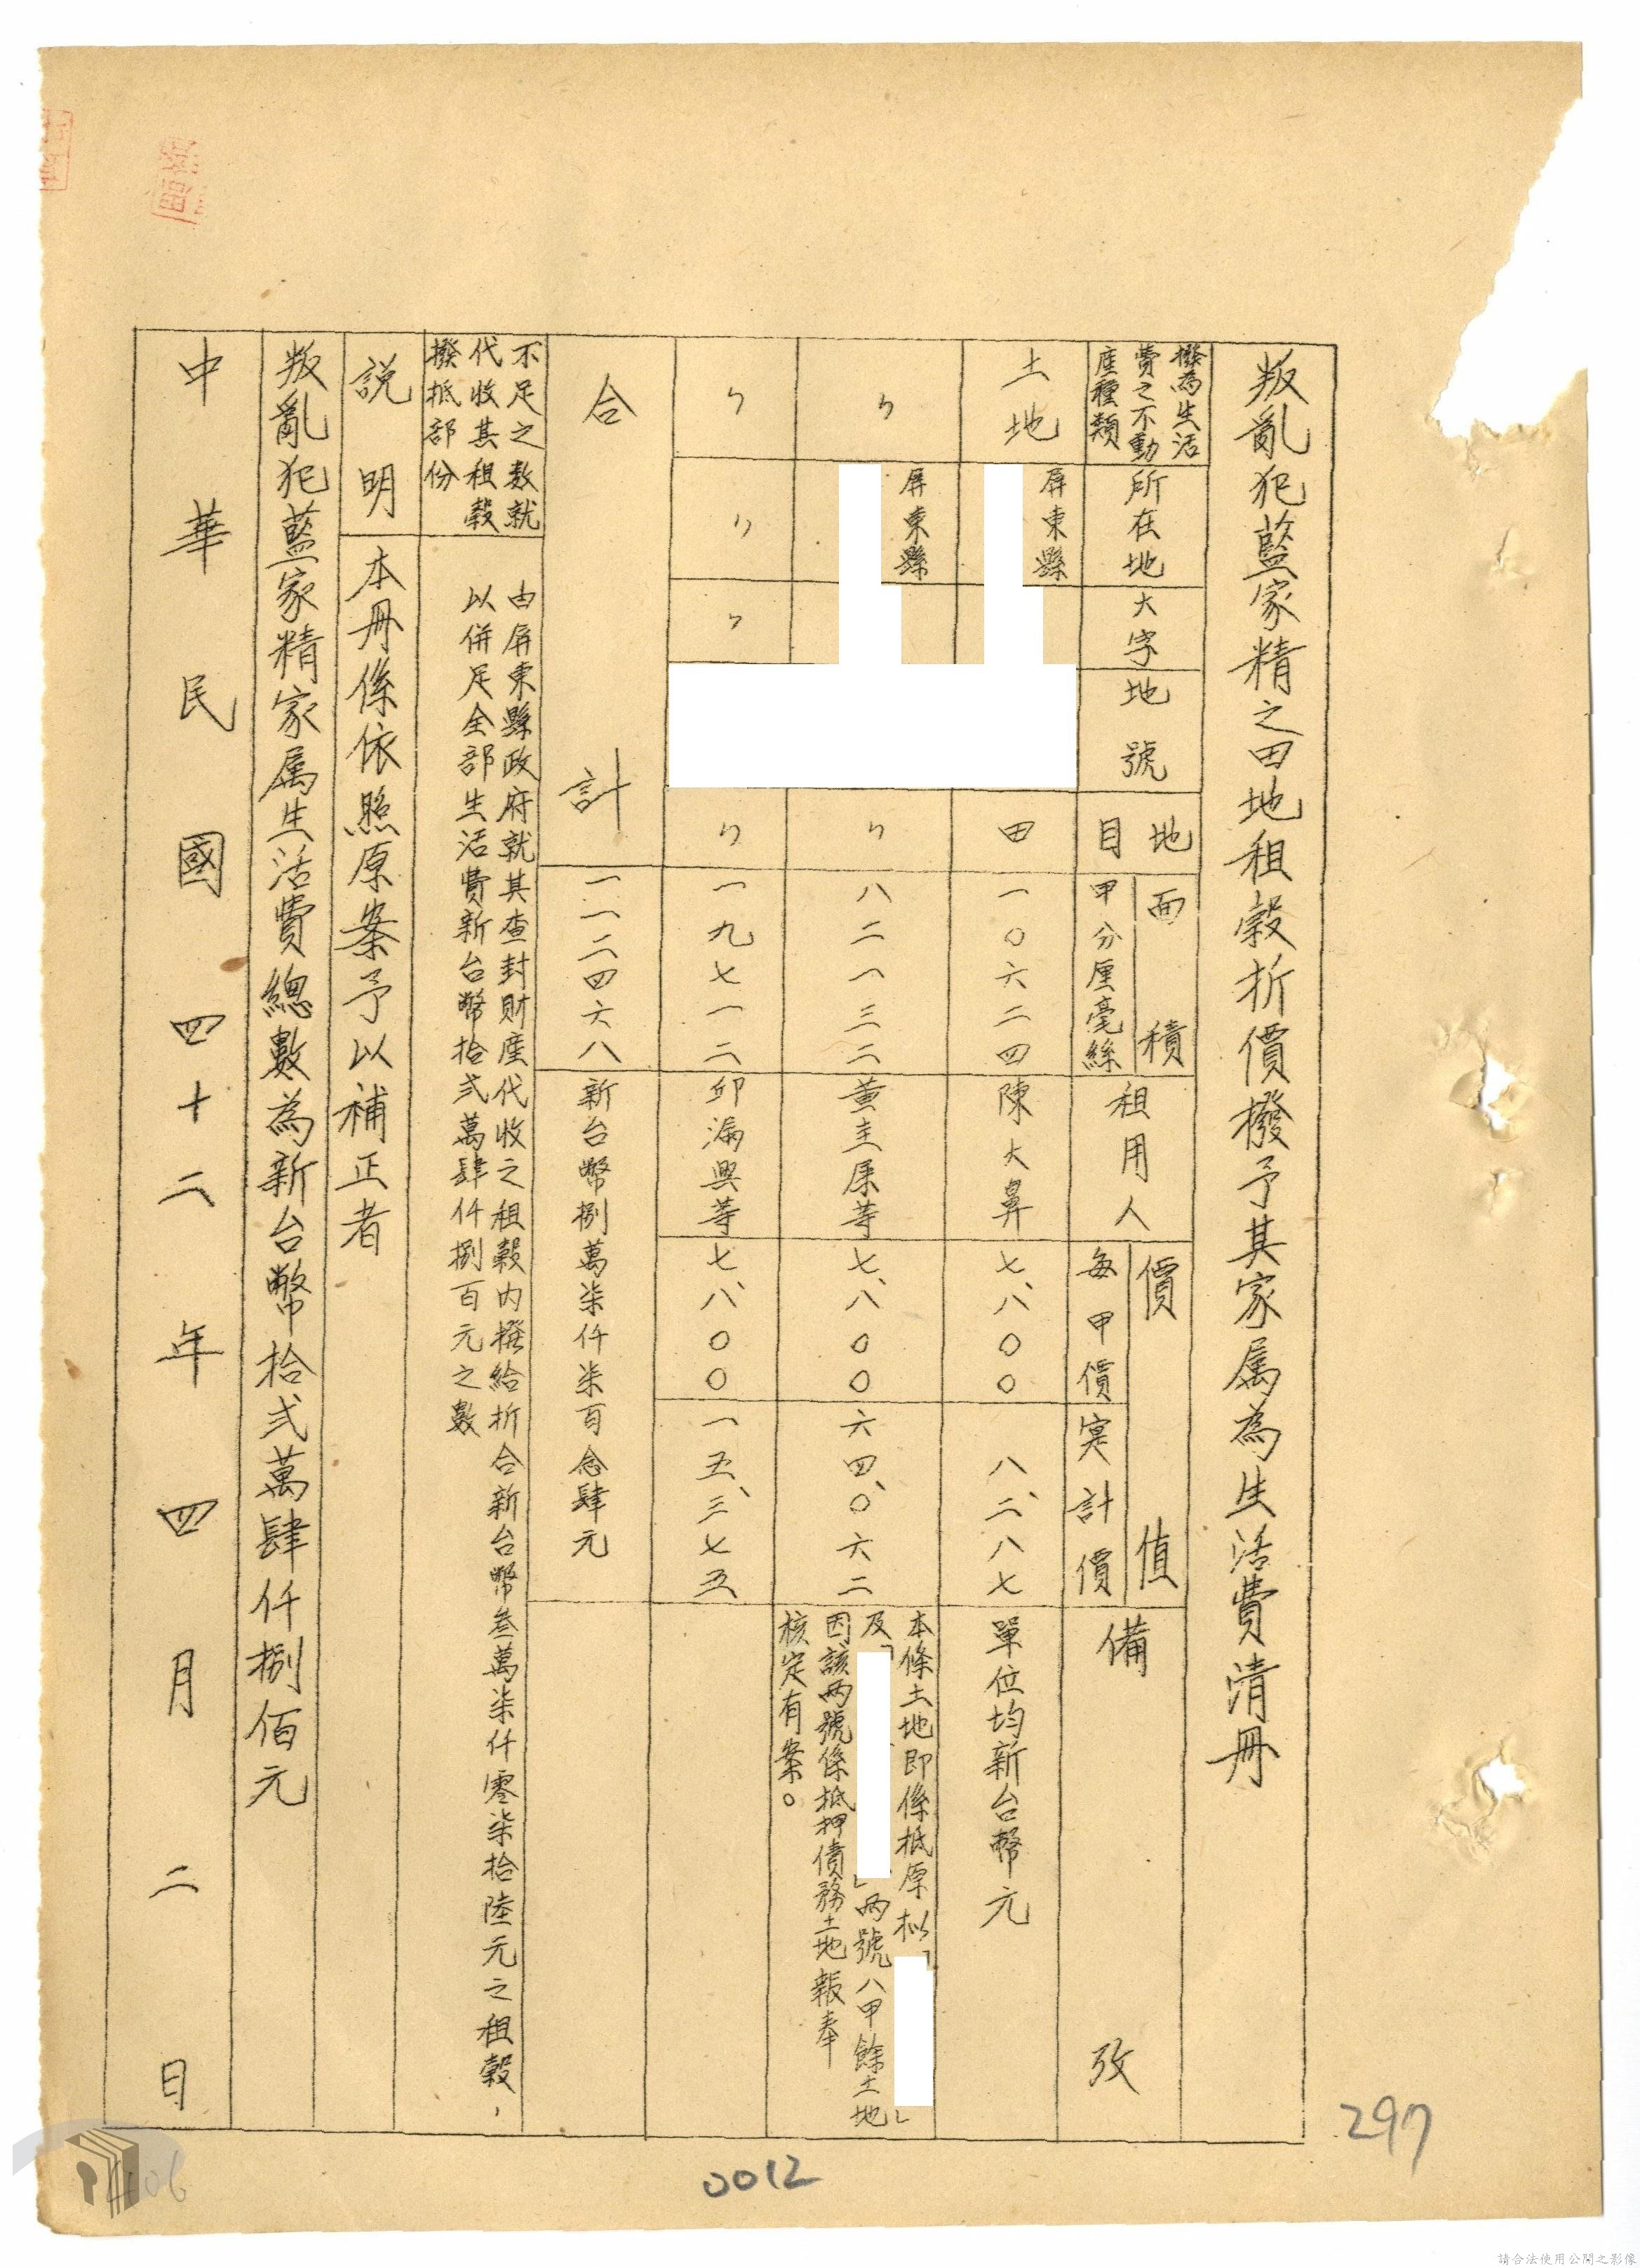 叛亂犯藍家精之田地租穀折價撥予其家属為生活費清冊
撥為生活費之不動產種類
所在地
大字
地號
地目
面積
甲分厘毫絲
租用人
價值
每甲價
実計價
備攷
土地
屏東縣
田
一〇六二四
陳大鼻
七、八〇〇
八、二八七
單位均新台幣元
〃
屏東縣
〃
八二一三二
黃主康等
七、八〇〇
六四、〇六二
本條土地即係抵原拟「」
及「」两號八甲餘土地
因該两號係抵押債務土地報奉
核定有案。
〃
〃
〃
〃
一九七一二
邱漏興等
七、八〇〇
一五、三七五
合計
一一二四六八
新台幣捌萬柒仟柒百念肆元
不足之数就
代收其租穀
撥抵部份
由屏東縣政府就其查封財產代收之租穀内撥給折合新台幣叁萬柒仟零柒拾陸元之租穀，
以併足全部生活費新台幣拾弍萬肆仟捌百元之數
説明
本冊係依照原案予以補正者
叛亂犯藍家精家属生活費總數為新台幣拾弍萬肆仟捌佰元
中華民國四十二年四月二日
297
0012
406
請合法使用公開之影像